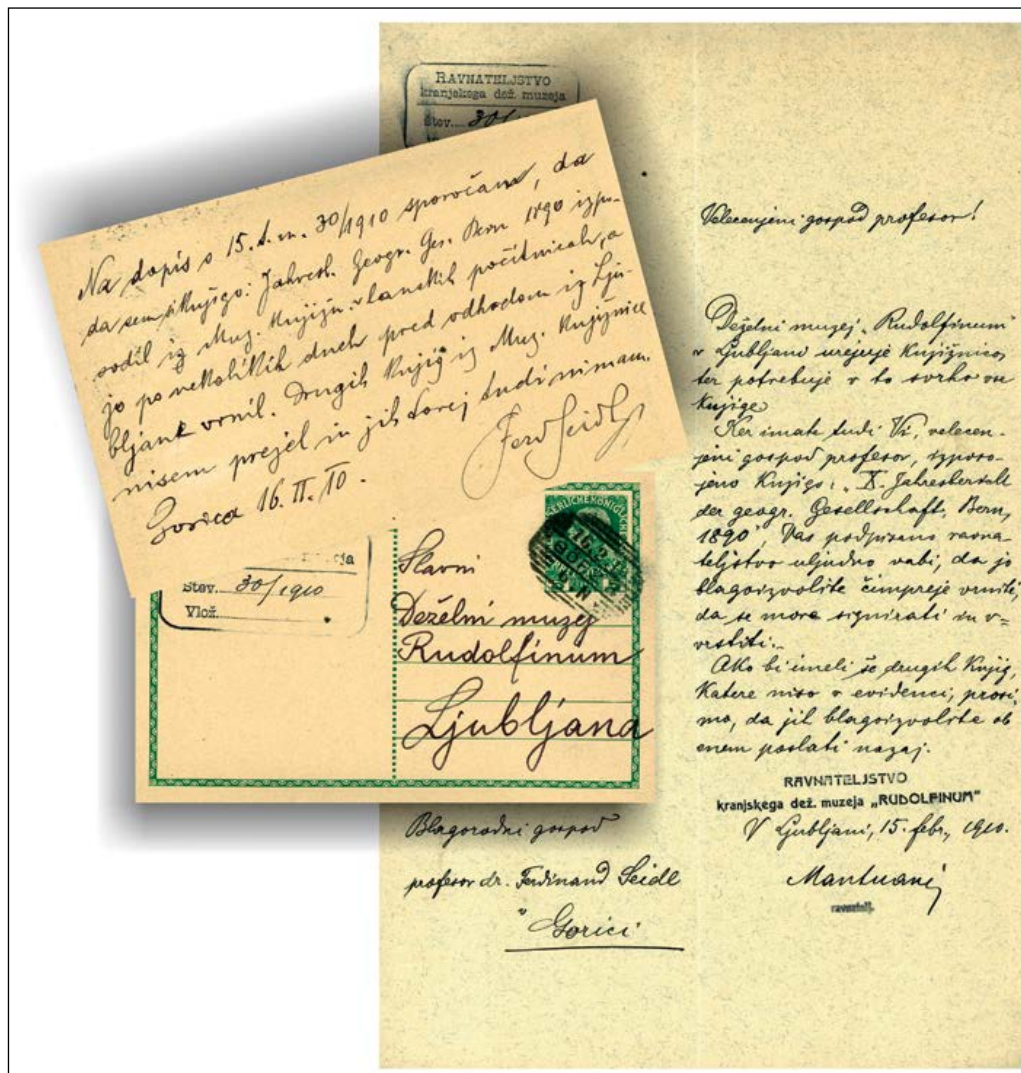 RAVNATELJSTVO
kranjskega dež. muzeja
Štev. 30/
Na dopis s 15. t. m. 30/1910 sporočam, da
da sem knjigo: Jahresb. Geogr. Ges. Bern 1890 izpo-
sodil iz Muz. knjižn. v lanskih počitnicah, a
jo po nekolikih dneh pred odhodom iz Lju-
bljane vrnil. Drugih knjig iz Muz. knjižnice
nisem prejel in jih torej tudi nimam.
Gorica 16. II. 10.
Ferd Seidl
Štev. 30/1910
Vlož.
Slavni
Deželni muzej
Rudolfinum
Ljubljana
Velecenjeni gospod profesor!
Deželni muzej „Rudolfinum“
v Ljubljani urejuje knjižnico,
ter potrebuje v to svrho vse
knjige.
Ker imate tudi Vi, velecen-
jeni gospod profesor, izposo-
jeno knjigo: „X. Jahresbericht
der geogr. Gesellschaft, Bern,
1890“, Vas podpisano ravna-
teljstvo uljudno vabi, da jo
blagoizvolite čimpreje vrniti,
da se more signirati in u-
vrstiti.
Ako bi imeli še drugih knjig,
katere niso v evidenci, prosi-
mo, da jih blagoizvolite ob
enem poslati nazaj.
RAVNATELJSTVO
kranjskega dež. muzeja „RUDOLFINUM“
V Ljubljani, 15. febr., 1910.
Mantuani
ravnatelj.
Blagorodni gospod
profesor dr. Ferdinand Seidl
v Gorici